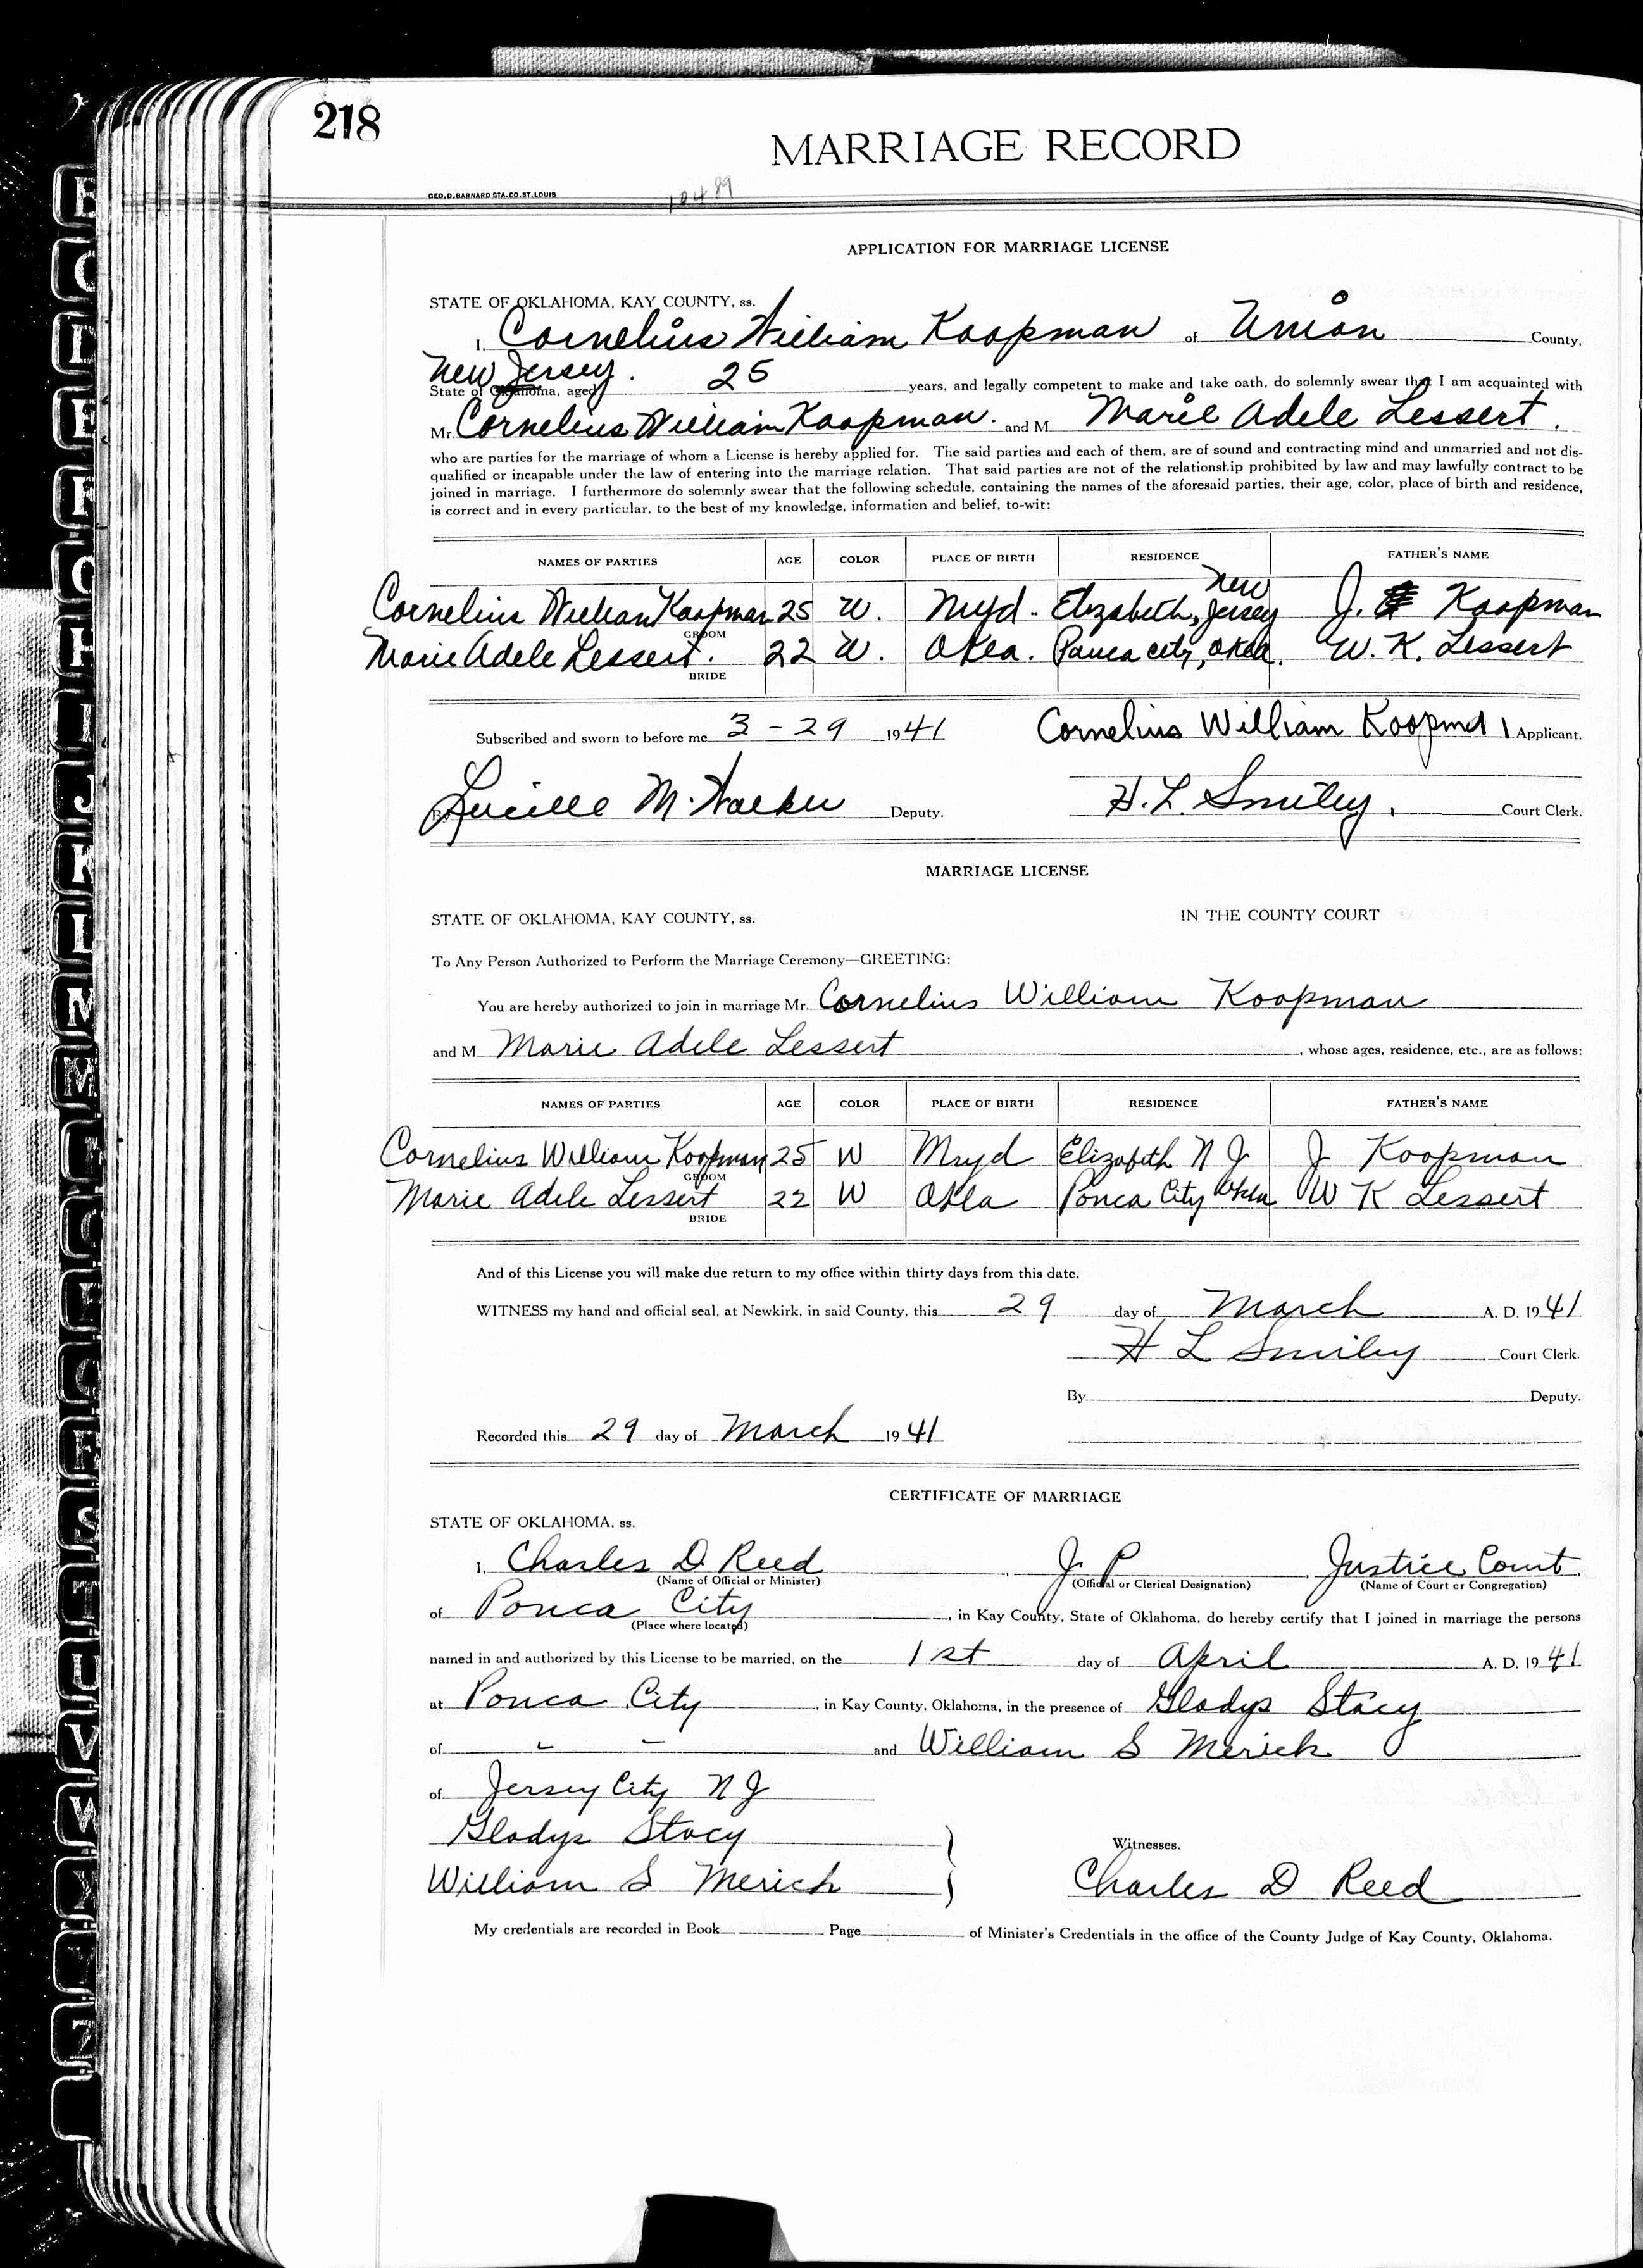 218
MARRIAGE RECORD
GEO. D. BARNARD STA. CO. ST. LOUIS
10489
APPLICATION FOR MARRIAGE LICENSE
STATE OF OKLAHOMA, KAY COUNTY, ss.
I, Cornelius William Koopman of Union County,
New Jersey.
State of Oklahoma, aged 25 years, and legally competent to make and take oath, do solemnly swear that I am acquainted with
Mr. Cornelius William Koopman. and M Marie Adele Lessert.
who are parties for the marriage of whom a License is hereby applied for. The said parties and each of them, are of sound and contracting mind and unmarried and not dis-
qualified or incapable under the law of entering into the marriage relation. That said parties are not of the relationship prohibited by law and may lawfully contract to be
joined in marriage. I furthermore do solemnly swear that the following schedule, containing the names of the aforesaid parties, their age, color, place of birth and residence,
is correct and in every particular, to the best of my knowledge, information and belief, to-wit:
NAMES OF PARTIES AGE COLOR PLACE OF BIRTH RESIDENCE FATHER'S NAME
Cornelius William Koopman 25 W. Myd. Elizabeth, New Jersey J. Koopman
GROOM
Marie Adele Lessert. 22 W. Okla. Ponca City, Okla. W. K. Lessert
BRIDE
Subscribed and sworn to before me 3-29 1941 Cornelius William Koopman Applicant.
Lucille M. Walker Deputy. H. L. Smiley, Court Clerk.
MARRIAGE LICENSE
STATE OF OKLAHOMA, KAY COUNTY, ss. IN THE COUNTY COURT
To Any Person Authorized to Perform the Marriage Ceremony—GREETING:
You are hereby authorized to join in marriage Mr. Cornelius William Koopman
and M Marie Adele Lessert, whose ages, residence, etc., are as follows:
NAMES OF PARTIES AGE COLOR PLACE OF BIRTH RESIDENCE FATHER'S NAME
Cornelius William Koopman 25 W Mryd Elizabeth N J J Koopman
GROOM
Marie Adele Lessert 22 W Okla Ponca City Okla W K Lessert
BRIDE
And of this License you will make due return to my office within thirty days from this date.
WITNESS my hand and official seal, at Newkirk, in said County, this 29 day of March A. D. 1941
H L Smiley Court Clerk.
By Deputy.
Recorded this 29 day of March 1941
CERTIFICATE OF MARRIAGE
STATE OF OKLAHOMA, ss.
I, Charles D. Reed, J. P., Justice Court.
(Name of Official or Minister) (Official or Clerical Designation) (Name of Court or Congregation)
of Ponca City, in Kay County, State of Oklahoma, do hereby certify that I joined in marriage the persons
(Place where located)
named in and authorized by this License to be married, on the 1st day of April A. D. 1941
at Ponca City, in Kay County, Oklahoma, in the presence of Gladys Stacy
of - - and William S Merich
of Jersey City N J
Gladys Stacy
Witnesses.
William S Merich Charles D Reed
My credentials are recorded in Book Page of Minister's Credentials in the office of the County Judge of Kay County, Oklahoma.